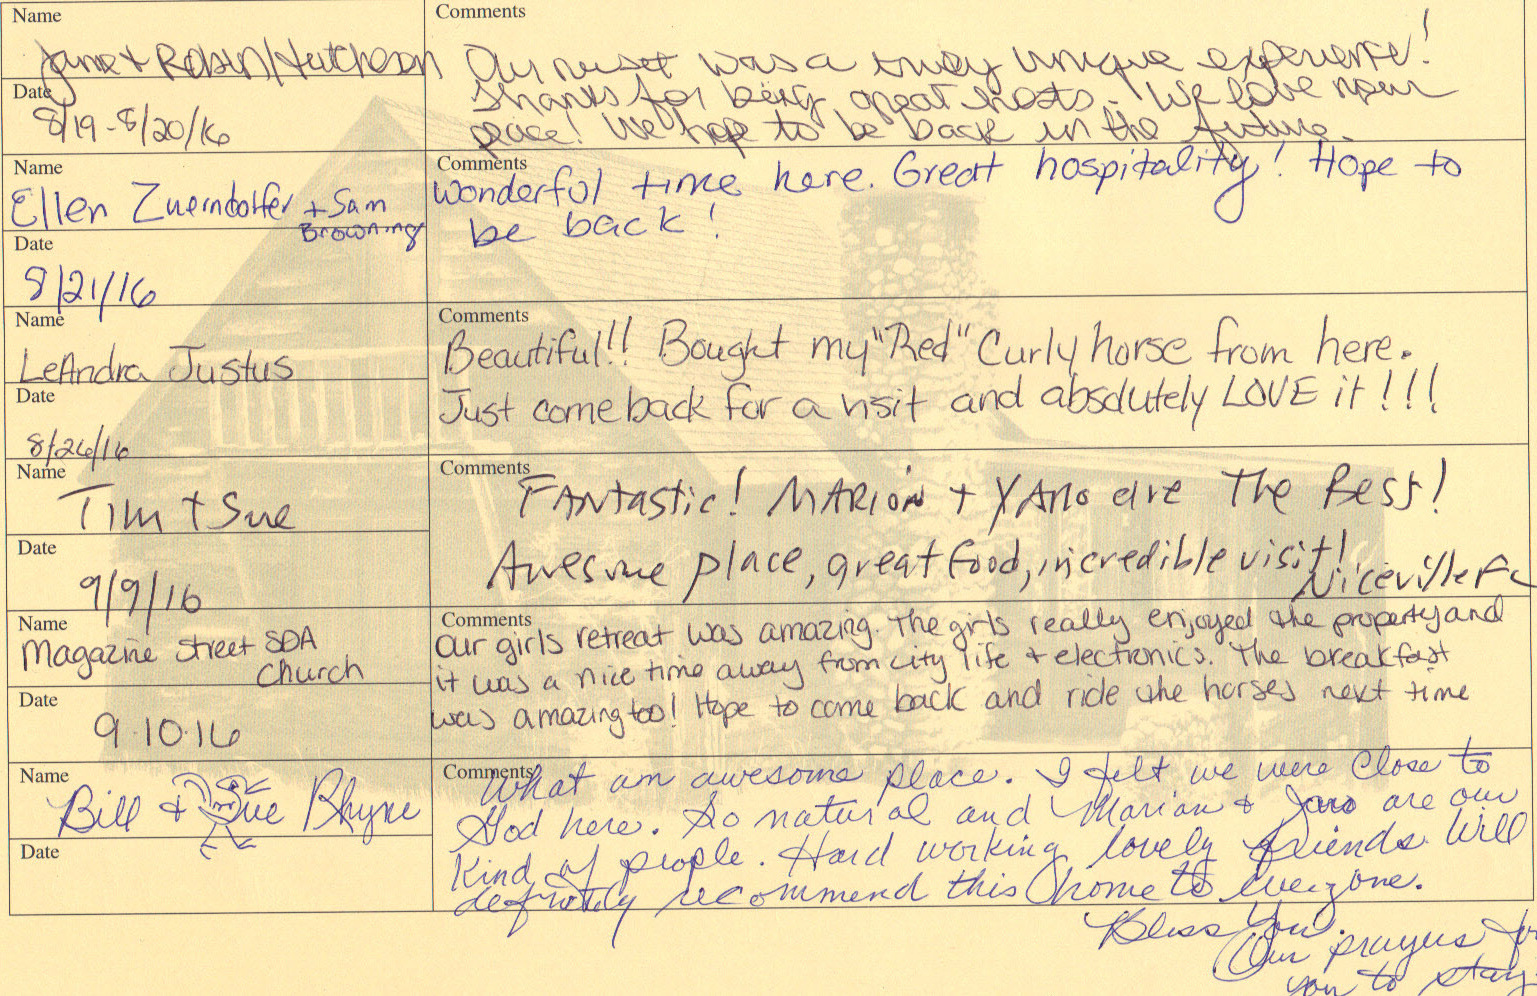 Name
Jane + Robin Hutcheson
Date
8/19 - 8/20/16
Comments
Our visit was a truly unique experience!
Thanks for being great hosts. We love your
place! We hope to be back in the future.
Name
Ellen Zuerndorfer + Sam
Browning
Date
8/21/16
Comments
Wonderful time here. Great hospitality! Hope to
be back!
Name
LeAndra Justus
Date
8/26/16
Comments
Beautiful!! Bought my "Red" Curly horse from here.
Just come back for a visit and absolutely LOVE it!!!
Name
Tim + Sue
Date
9/9/16
Comments
FANtastic! MARION + YARO are The Best!
Awesome place, great food, incredible visit!
Niceville FL
Name
Magazine Street SDA
Church
Date
9.10.16
Comments
Our girls retreat was amazing. The girls really enjoyed the property and
it was a nice time away from city life + electronics. The breakfast
was amazing too! Hope to come back and ride the horses next time
Name
Bill + Sue Rhyne
Date
Comments
What an awesome place. I felt we were close to
God here. So natural and Marian + Jaro are our
kind of people. Hard working lovely friends. Will
definitely recommend this home to everyone.
Bless You.
Our prayers for
you to stay